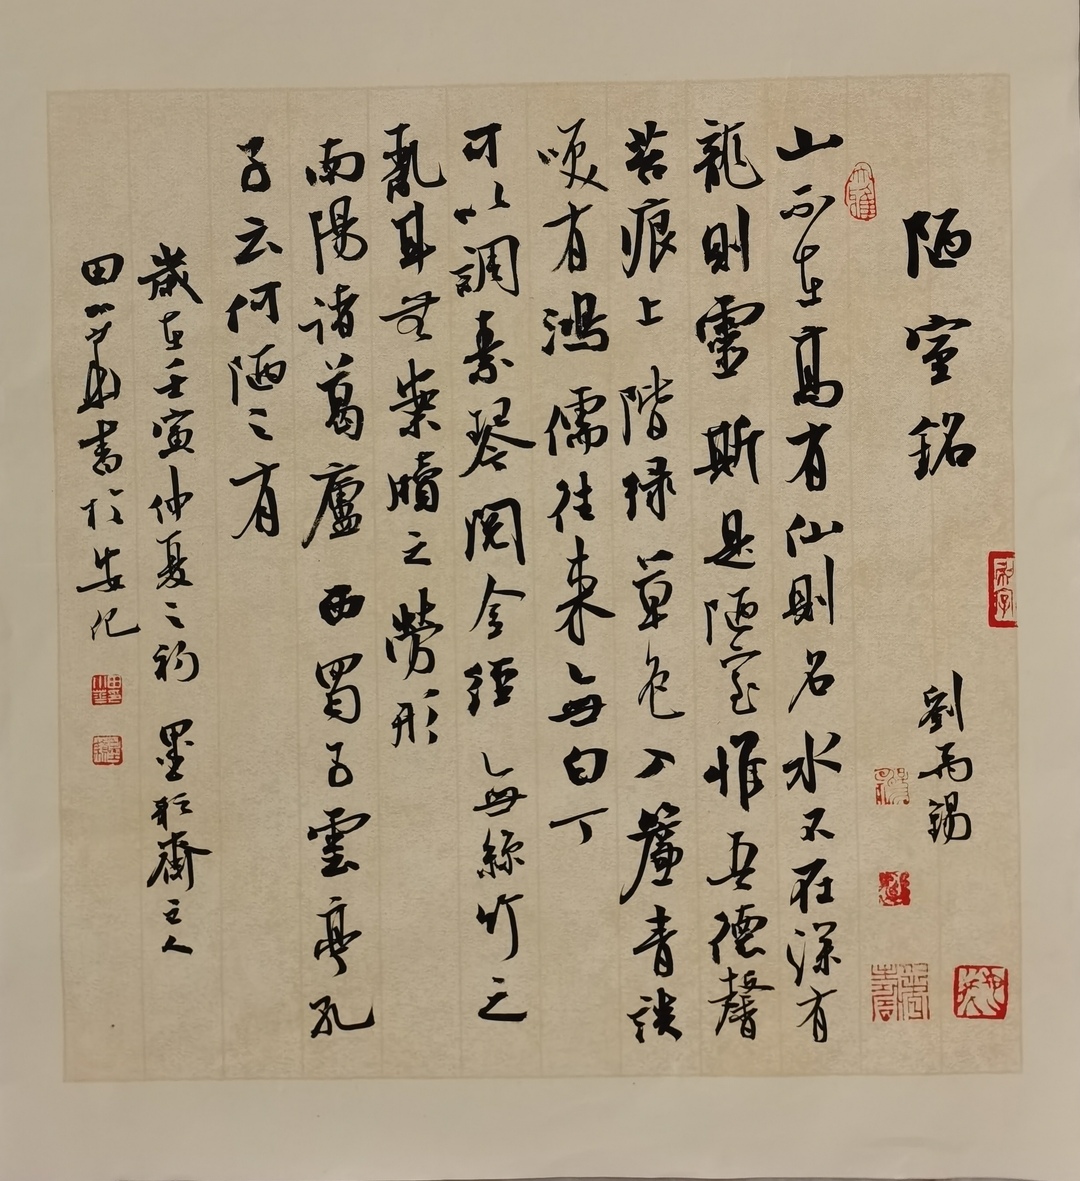 陋室銘
劉禹錫
山不在高有仙則名水不在深有
龍則靈斯是陋室惟吾德馨
苔痕上階緑草色入簾青談
咲有鴻儒往來無白丁
可以調素琴閱金經無絲竹之
亂耳無案牘之勞形
南陽諸葛廬西蜀子雲亭孔
子云何陋之有
歲在壬寅仲夏之初 墨齋主人
田小華書於安化